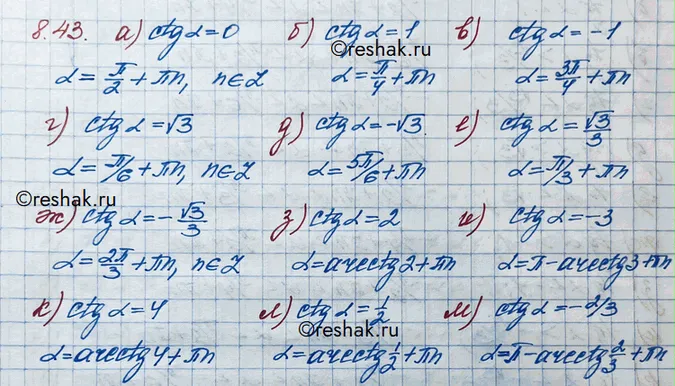 8.43. а) ctg α = 0 б) ctg α = 1 в) ctg α = -1
©reshak.ru
α = π/2 + πn, n∈Z α = π/4 + πn α = 3π/4 + πn
г) ctg α = √3 д) ctg α = -√3 е) ctg α = √3/3
α = π/6 + πn, n∈Z α = 5π/6 + πn α = π/3 + πn
©reshak.ru
ж) ctg α = -√3/3 з) ctg α = 2 и) ctg α = -3
α = 2π/3 + πn, n∈Z α = arcctg 2 + πn α = π - arcctg 3 + πn
к) ctg α = 4 л) ctg α = 1/2 м) ctg α = -2/3
©reshak.ru
α = arcctg 4 + πn α = arcctg 1/2 + πn α = π - arcctg 2/3 + πn